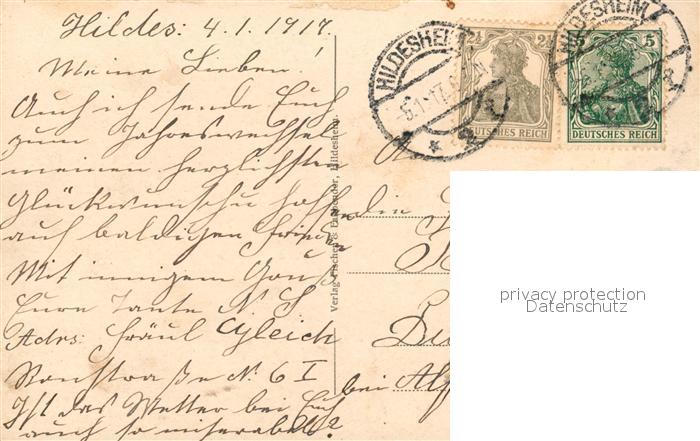 Hildes: 4.1.1917.
Meine Lieben.
Auch ich sende Euch
zum Jahreswechsel
meinen herzlichsten
Glückwunsch hoffend
auf baldigen Frieden
Mit innigem Gruß
Eure Tante N. S.
Adrs: Fräul Gleich
N. 6 I
Ist das Wetter bei Euch
auch so miserabel?
Verlag Fischer & Hildesheim.
HILDESHEIM
-5.1.17.
2½ 2½
DEUTSCHES REICH
HILDESHEIM
5 5
DEUTSCHES REICH
bei
privacy protection
Datenschutz